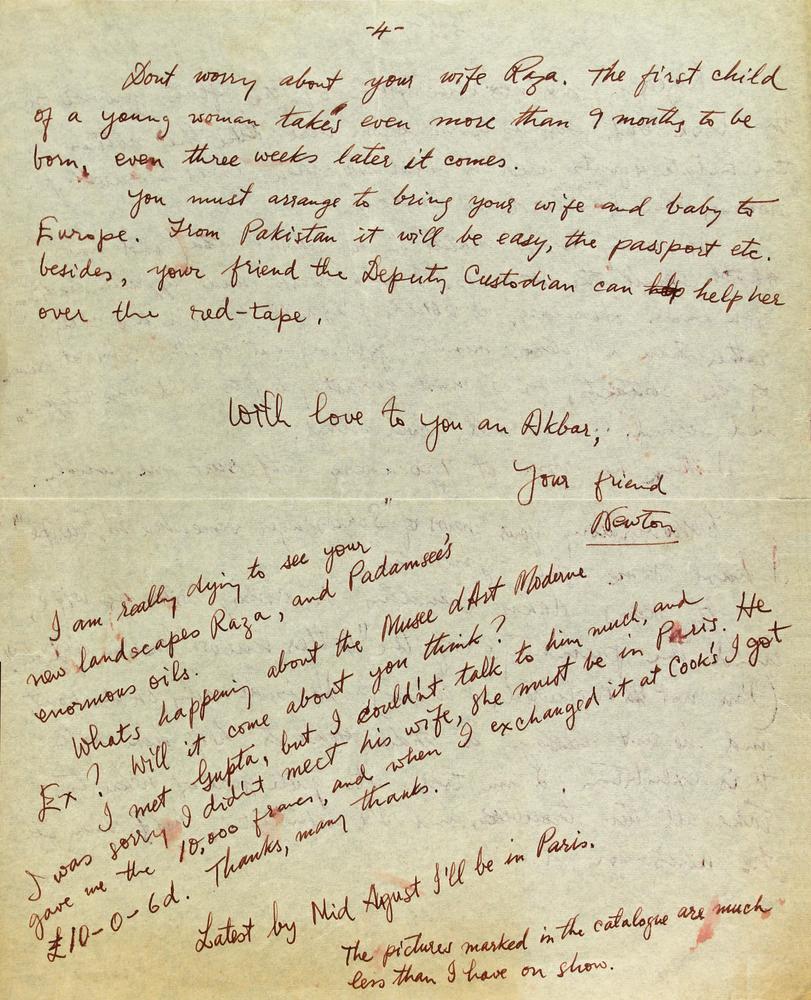 -4-
Dont worry about your wife Raza. The first child
of a young woman takes even more than 9 months to be
born, even three weeks later it comes.
You must arrange to bring your wife and baby to
Europe. From Pakistan it will be easy, the passport etc.
besides, your friend the Deputy Custodian can help her
over the red-tape.
With love to you an Akbar,
Your friend
Newton
I am really dying to see your
new landscapes Raza, and Padamsee's
enormous oils.
Whats happening about the Musee d'Art Moderne
Ex? Will it come about you think?
I met Gupta, but I couldn't talk to him much, and
I was sorry I didn't meet his wife, she must be in Paris. He
gave me the 10,000 francs, and when I exchanged it at Cook's I got
£10-0-6d. Thanks, many thanks.
Latest by Mid Agust I'll be in Paris.
The pictures marked in the catalogue are much
less than I have on show.